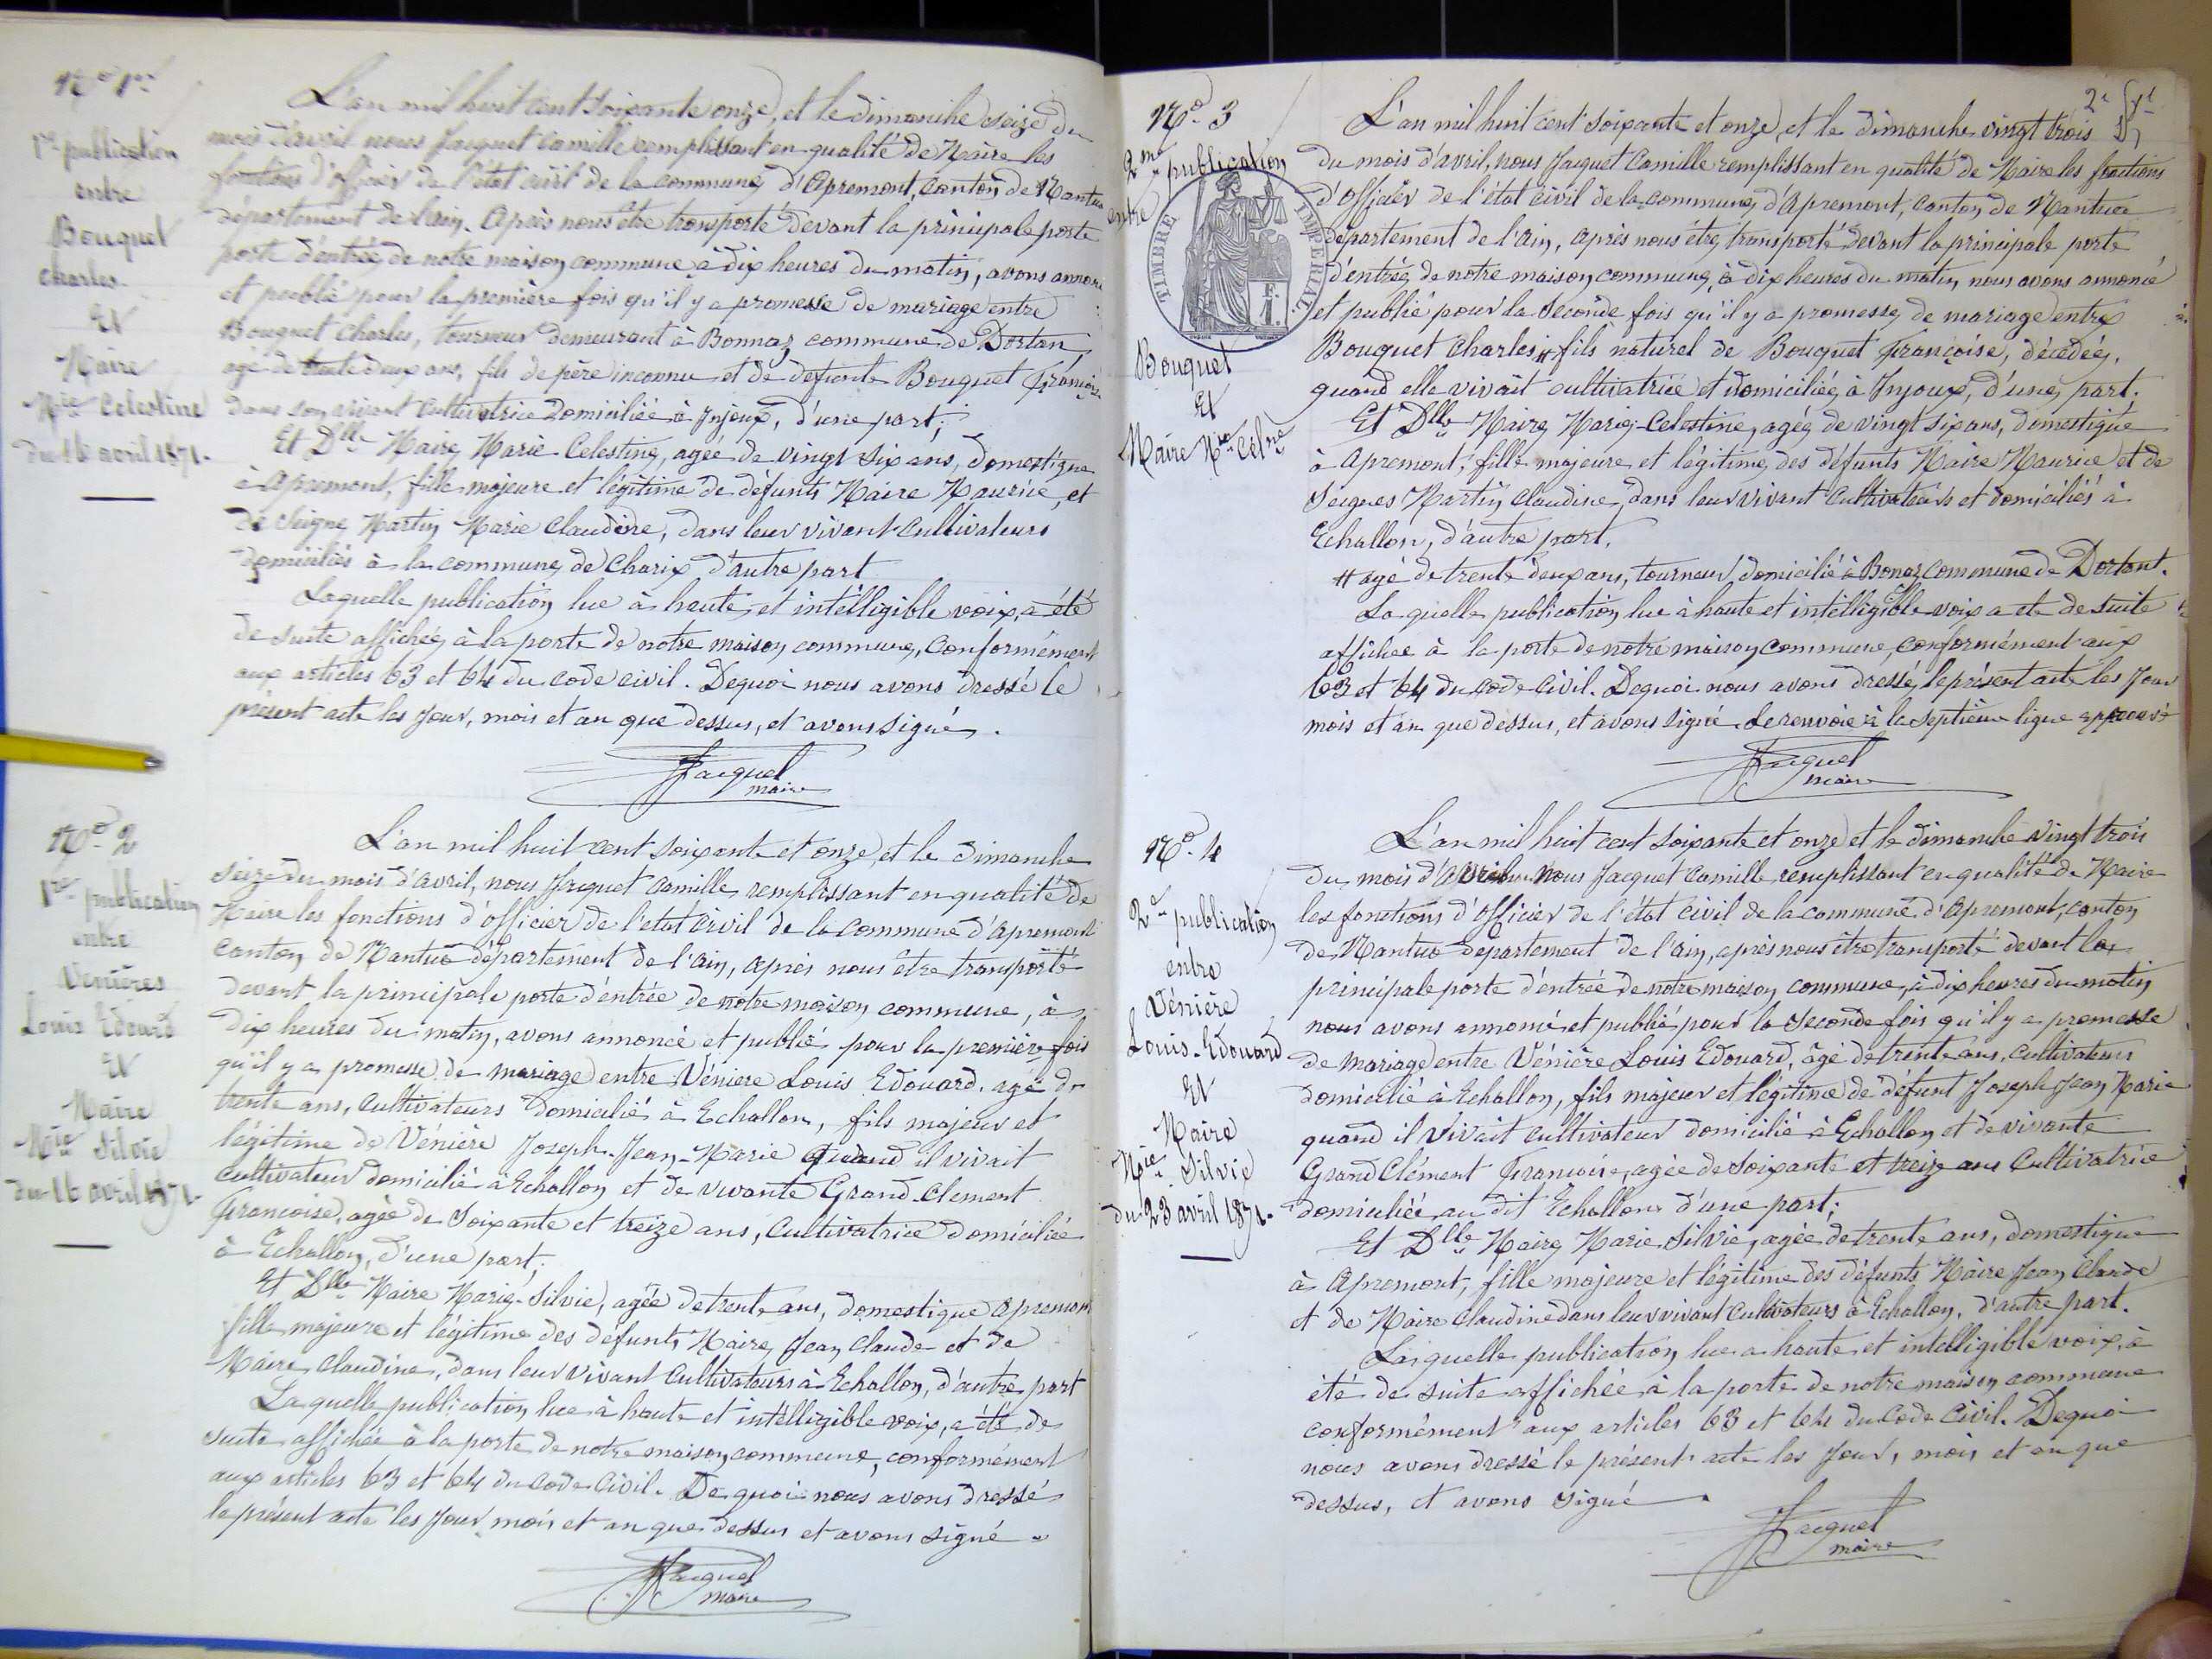 N.o 1er
1re publication
entre
Bouquet
Charles.
Et
Maire
Mie Celestine
du 16 avril 1871.
L'an mil huit cent soixante onze, et le dimanche seize du
mois d'avril nous Jacquet Camille remplissant en qualité de Maire les
fonctions d'officier de l'état civil de la commune d'Apremont, Canton de Nantua
département de l'ain. Après nous être transporté devant la principale porte
porte d'entrée de notre maison commune à dix heures du matin, avons annoncé
et publié pour la première fois qu'il y a promesse de mariage entre
Bouquet Charles, tourneur demeurant à Bonnaz commune de Dortan,
agé de trente deux ans, fils de père inconnu et de defunte Bouquet Françoise
dans son vivant Cultivatrice domiciliée à Injoux, d'une part;
Et Dlle Maire Marie Celestine, agée de vingt six ans, domestique
à Apremont, fille majeure et légitime de défunts Maire Maurice, et
de Seigne Martin Marie Claudine, dans leur vivant Cultivateurs
domiciliés à la commune de Charix d'autre part
Laquelle publication lue à haute et intélligible voix, a été
de suite affichée à la porte de notre maison commune, Conformément
aux articles 63 et 64 du code civil. Dequoi nous avons dressé le
présent acte les jour, mois et an que dessus, et avons signé.
Jacquet
maire
N.o 2
1re publication
entre
Venières
Louis Edouard
Et
Maire
Mie Silvie
du 16 avril 1871.
L'an mil huit cent soixante et onze, et le dimanche
seize du mois d'avril, nous Jacquet Camille remplissant en qualité de
Maire les fonctions d'officier de l'etat civil de la Commune d'Apremont
Canton de Nantua département de l'ain, après nous être transporté
devant la principale porte d'entrée de notre maison commune, à
dix heures du matin, avons annoncé et publié pour la première fois
qu'il y a promesse de mariage entre Vénière Louis Edouard, agé de
trente ans, Cultivateurs domicilié à Echallon, fils majeur et
légitime de Vénière Joseph-Jean-Marie quand il vivait
Cultivateur domicilié à Echallon et de vivante Grand-Clement
Françoise, agée de Soixante et treize ans, Cultivatrice domiciliée
à Echallon, d'une part;
Et Dlle Maire Marie-Silvie, agée de trente ans, domestique Apremont
fille majeure et légitime des défunts Maire Jean Claude et de
Maire Claudine, dans leur vivant Cultivateurs à Echallon, d'autre part
La quelle publication lue à haute et intélligible voix, a été de
suite affichée à la porte de notre maison commune, conformément
aux articles 63 et 64 du code civil. De quoi nous avons dressé
le présent acte les jour mois et an que dessus et avons signé
Jacquet
maire
N.o 3
2me publication
entre
TIMBRE IMPERIAL
Bouquet
Et
Maire Mie Célne
2e
L'an mil huit cent soixante et onze, et le dimanche vingt trois
du mois d'avril, nous Jacquet Camille remplissant en qualité de Maire les fonctions
d'officier de l'état civil de la commune d'Apremont, canton de Nantua
département de l'ain, après nous être transporté devant la principale porte
d'entrée de notre maison commune, à dix heures du matin, nous avons annoncé
et publié pour la Seconde fois qu'il y a promesse de mariage entre
Bouquet Charles # fils naturel de Bouquet Françoise, décédée,
quand elle vivait cultivatrice et domiciliée à Injoux, d'une part.
Et Dlle Maire Marie-Celestine, agée de vingt six ans, domestique
à Apremont, fille majeure et légitime des défunts Maire Maurice et de
Seignes Martin Claudine, dans leur vivant Cultivateurs et domiciliés à
Echallon, d'autre part.
# agé de trente deux ans, tourneur domicilié à Bonaz commune de Dortant.
La quelle publication lue à haute et intélligible voix a ete de suite
affichee à la porte de notre maison commune, conformément aux
63 et 64 du code civil. Dequoi nous avons dressé le présent acte les jour
mois et an que dessus, et avons signé. Le renvoie à la septième ligne approuvé
Jacquet
maire
N.o 4
2e publication
entre
Vénière
Louis-Edouard
Et
Maire
Mie Silvie
du 23 avril 1871.
L'an mil huit cent soixante et onze, et le dimanche vingt trois
du mois d'avril nous Jacquet Camille remplissant en qualité de Maire
les fonctions d'officier de l'état civil de la commune d'Apremont, canton
de Nantua département de l'ain, après nous être transporté devant la
principale porte d'entrée de notre maison commune, à dix heures du matin
nous avons annoncé et publié pour la Seconde fois qu'il y a promesse
de mariage entre Vénière Louis Edouard, âgé de trente ans, cultivateur
domicilié à Echallon, fils majeur et légitime de défunt Joseph Jean Marie
quand il vivait cultivateur domicilié à Echallon et de vivante
Grand Clément Françoise, agée de soixante et treize ans Cultivatrice
domiciliée au dit Echallon d'une part;
Et Dlle Maire Marie Silvie, agée de trente ans, domestique
à Apremont, fille majeure et légitime des défunts Maire Jean Claude
et de Maire Claudine dans leur vivant Cultivateurs à Echallon, d'autre part.
Laquelle publication lue a haute et intelligible voix, à
été de suite affichée à la porte de notre maison commune
conformément aux articles 63 et 64 du Code Civil. Dequoi
nous avons dressé le présent acte les jour, mois et an que
dessus, et avons signé
Jacquet
maire